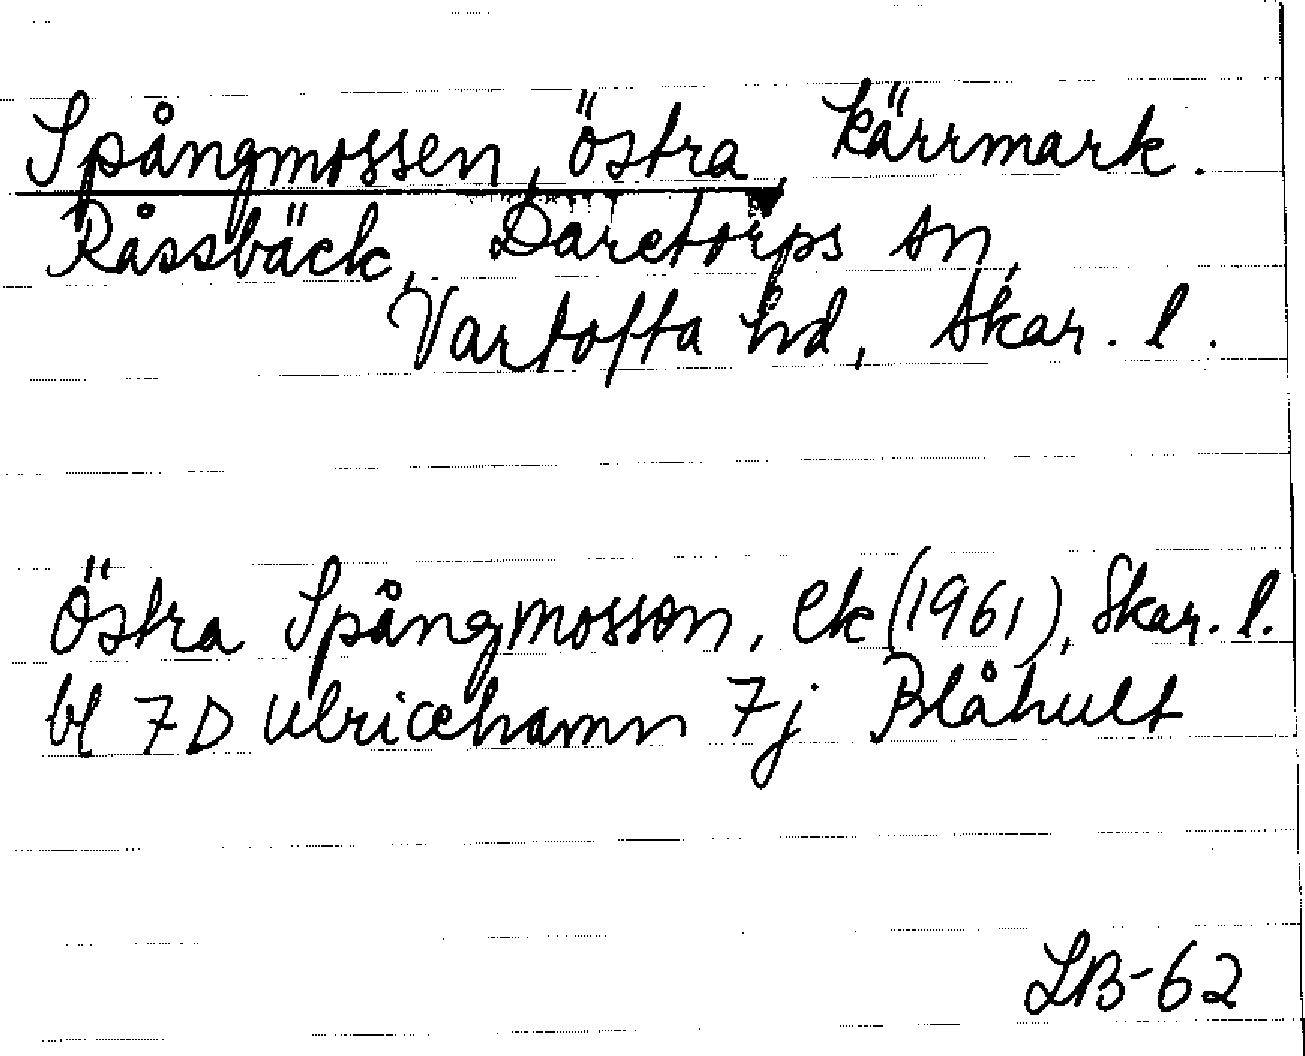 Spångmossen, östra, kärrmark.
Råssbäck, Daretorps sn,
Vartofta hd, Skar. l.
Östra Spångmosson, ek (1961), Skar. l.
bl 7D Ulricehamn 7j Blåhult
LB-62